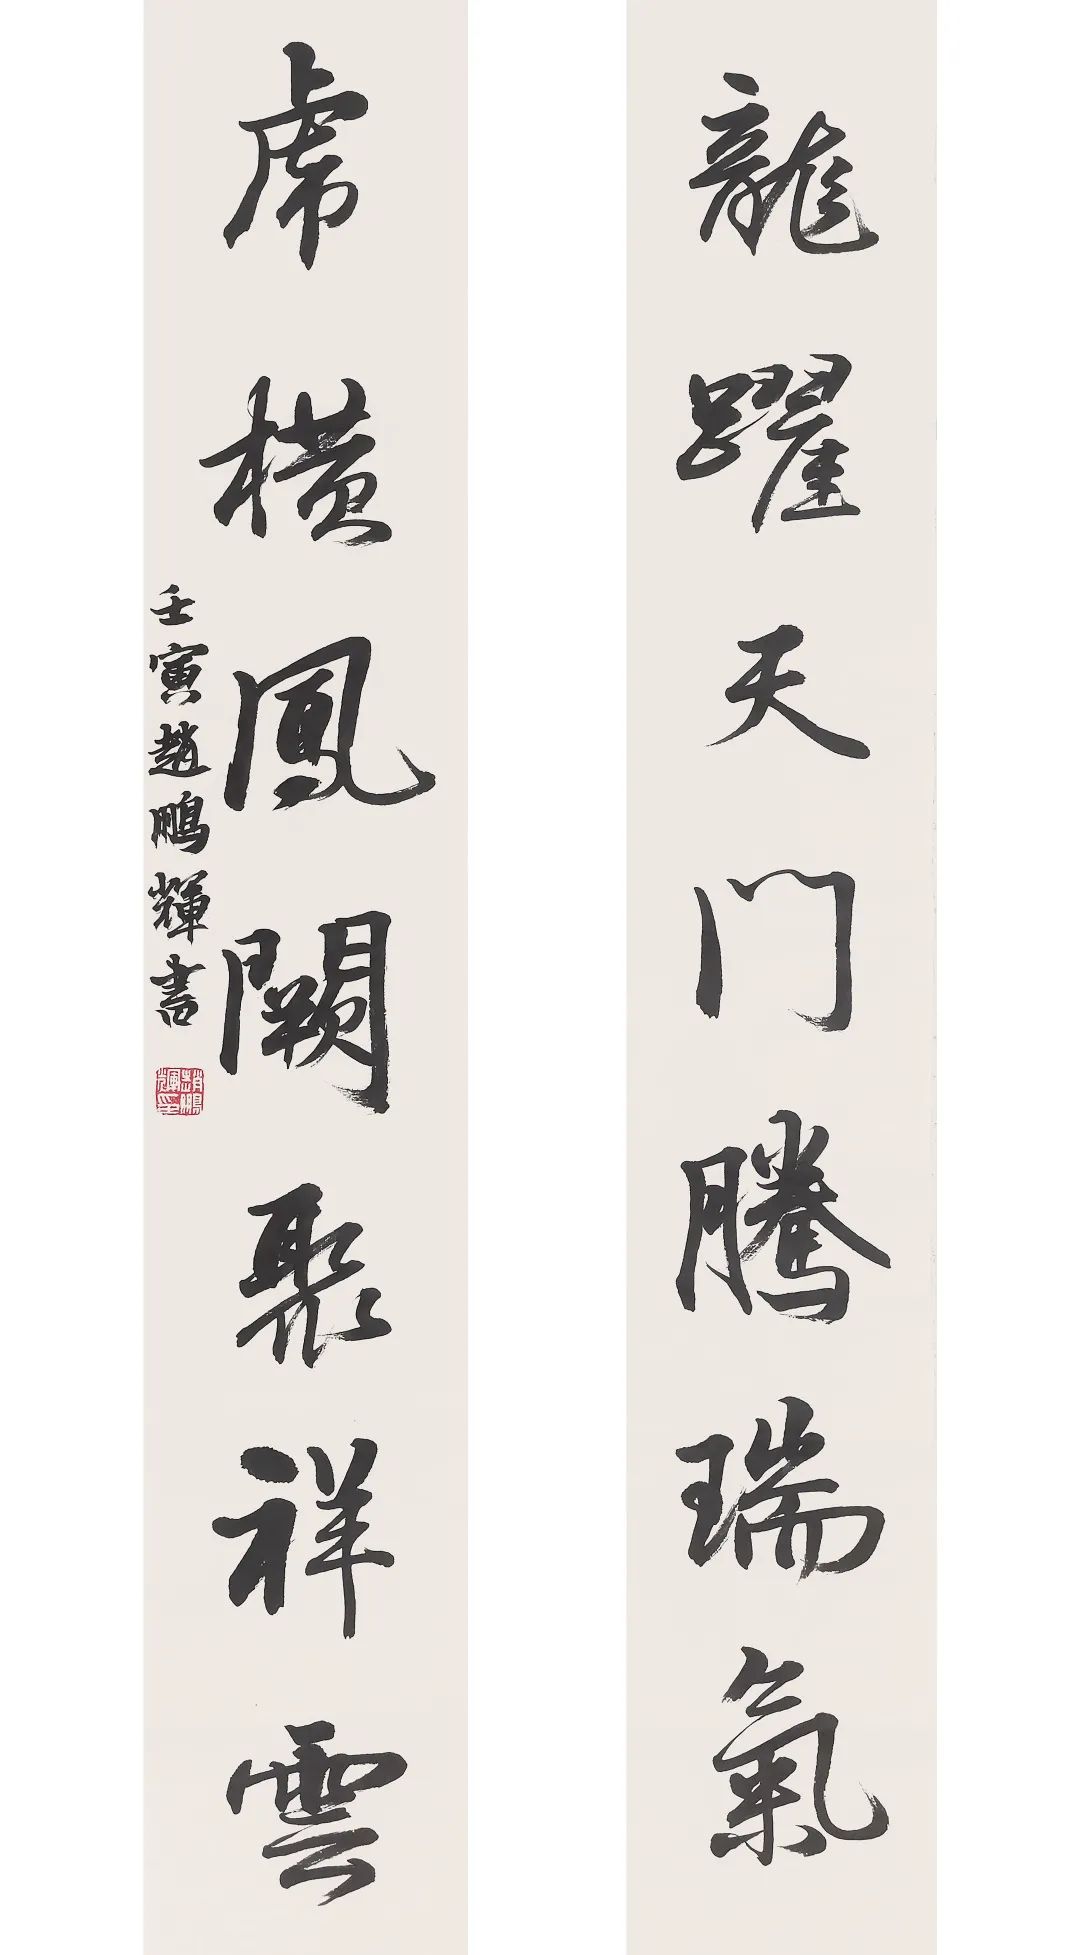 龍躍天门騰瑞氣
虎横鳳闕聚祥雲
壬寅趙鵬輝書
趙鵬輝印